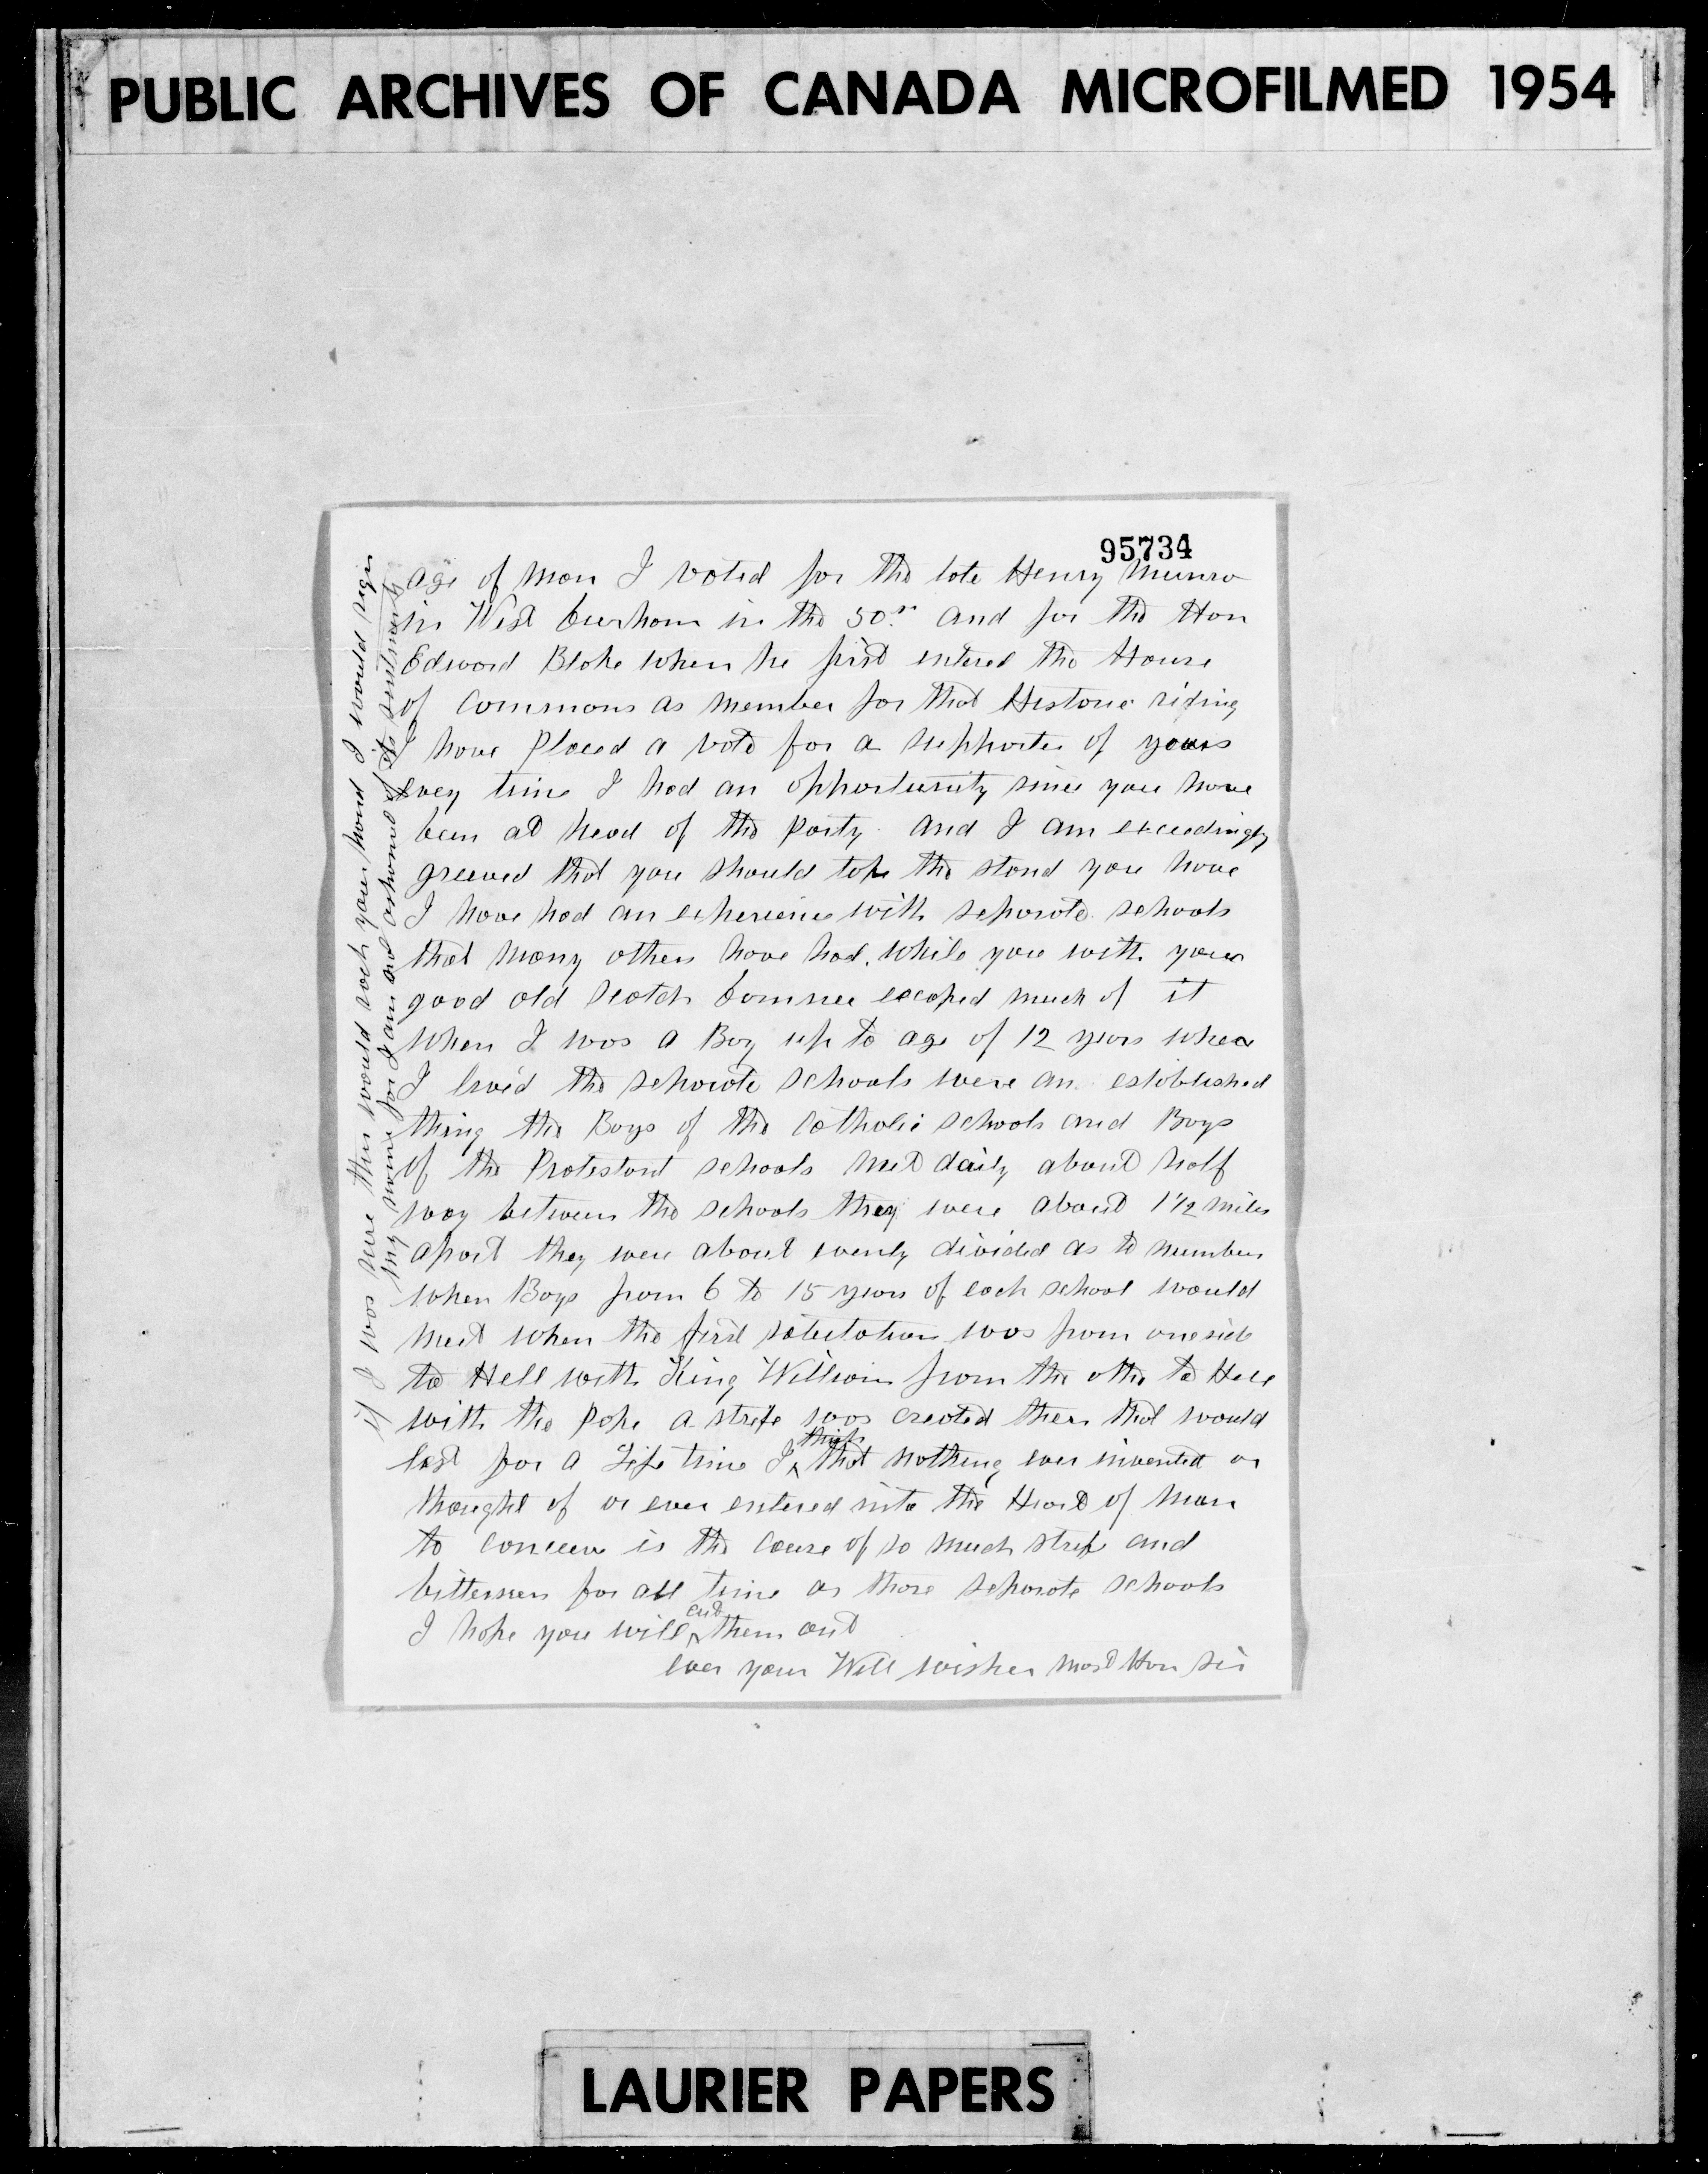 PUBLIC ARCHIVES OF CANADA MICROFILMED 1954
95734
age of man I voted for the late Henry Munro
in West Durham in the 50s and for the Hon
Edward Blake when he first entered the House
of Commons as member for that Historic riding
I have placed a vote for a supporter of yours
every time I had an opportunity since you have
been at head of the party and I am exceedingly
greeved that you should take the stand you have
I have had an experience with separate schools
that many others have had, while you with your
good old Scotch Dominee escaped much of it
When I was a Boy up to age of 12 years where
I lived the separate schools were an established
thing the Boys of the Catholic schools and Boys
of the Protestant schools met daily about half
way between the schools they were about 1 1/2 miles
apart they were about evenly divided as to numbers
when Boys from 6 to 15 years of each school would
meet when the first salutation was from one side
to Hell with King William from the other to Hell
with the Pope a strife was created there that would
last for a Life time I think that nothing ever invented or
thought of or ever entered into the Heart of man
to conceive is the cause of so much strife and
bitterness for all time as those separate schools
I hope you will cut them out
ever your Well wisher most Hon Sir
if I was sure this would reach your hand I would sign
my name for I am not ashamed of its sentiments
LAURIER PAPERS